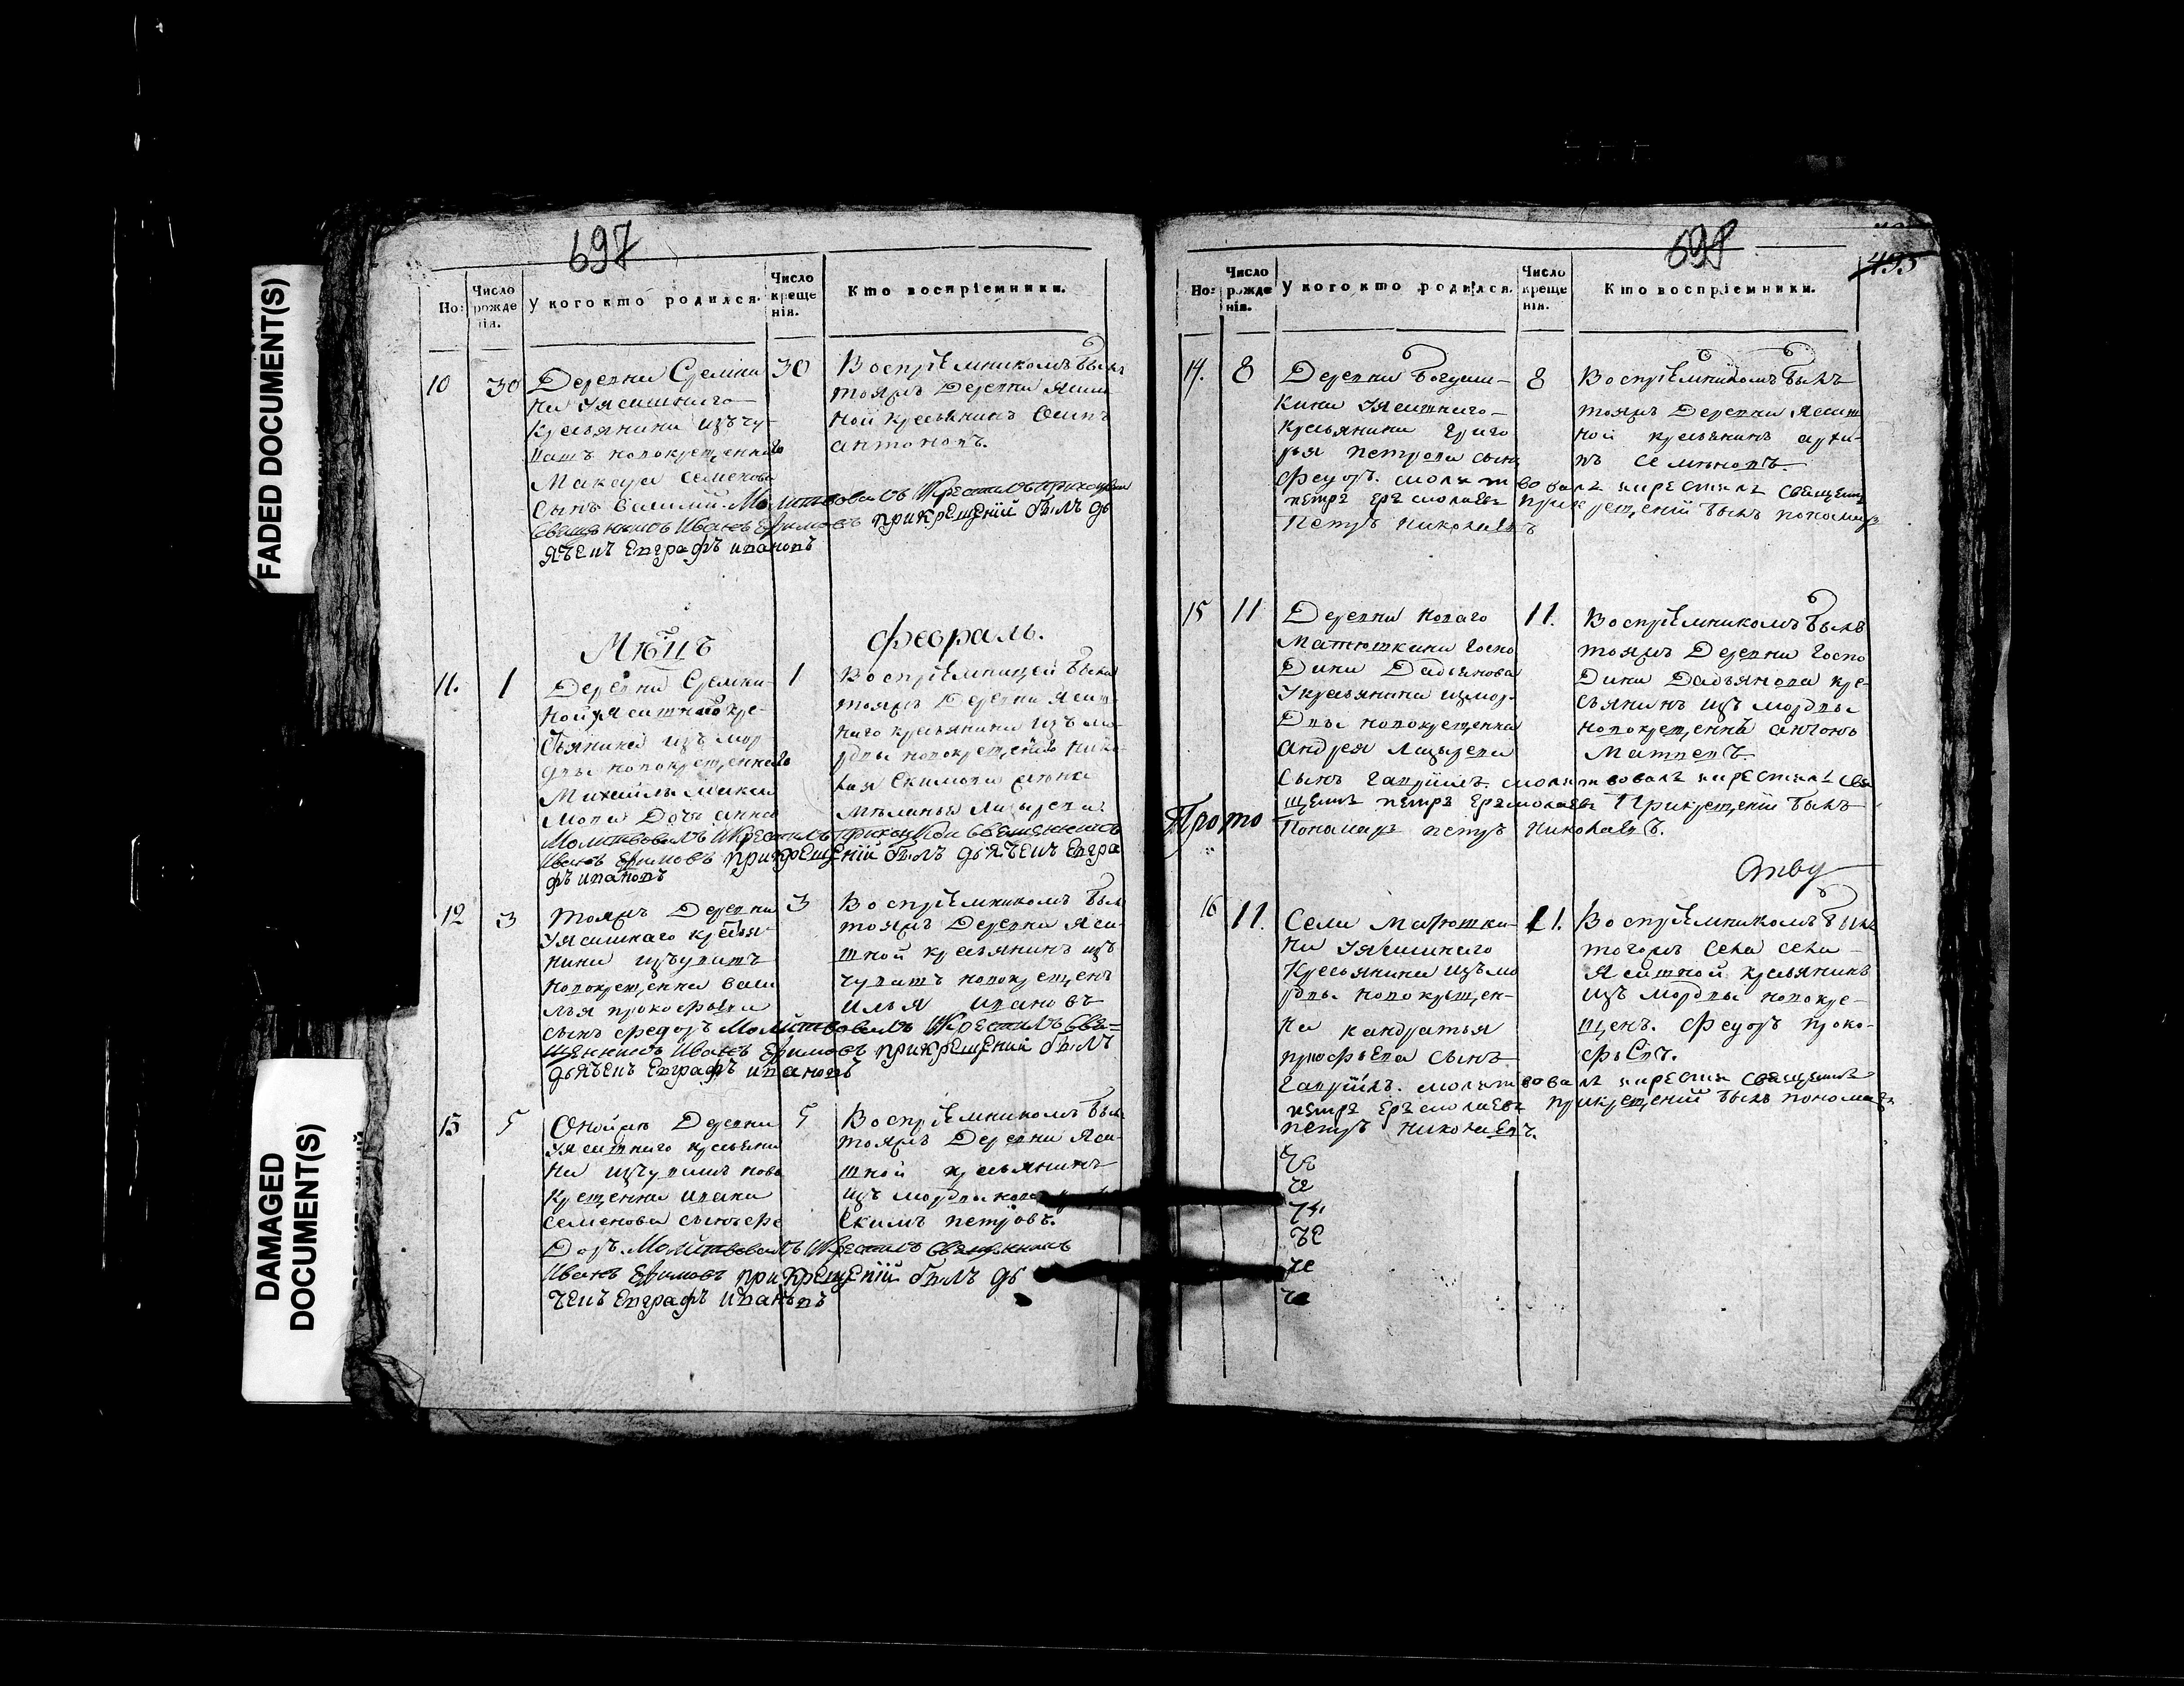 FADED DOCUMENT(S)
DAMAGED
DOCUMENT(S)
697
Но:
Число рожде нія.
У кого кто родился.
Число креще нія.
Кто воспріемники.
10
30
Деревни
на Уясашнаго
крестьянина изъ чу-
вашъ новокрещеннаго
Макара Семенова
сынъ Василий. Молитвовалъ Икрестилъ приходской
Священникъ Иванъ Ефимовъ прикрещеніи былъ дь
ячекъ Евграфъ ивановъ
30
Воспріемникомъ былъ
тояжъ Деревни Ясаш
ной крестьянинъ Осипъ
антоновъ.
Мѣцъ
Февраль.
11.
1
Деревни
ной уясашнаго кре-
стьянина изъ мор
двы новокрещеннаго
Михаила Макси
мова Дочь анна
Молитвовалъ Икрестилъ приходской священникъ
Иванъ Ефимовъ прикрещеніи былъ дьячекъ Евгра
фъ ивановъ
1
Воспріемницей была
тояжъ Деревни Ясаш
наго крестьянина изъ мо-
рдвы новокрещеннаго Нико-
лая Екимова жена
Мѣланья Лазарева.
12
3
Тояжъ Деревни
Уясашнаго крестья
нина изъчувашъ
новокрещенна Васи
лья прокофьева
сынъ федоръ Молитвовалъ Икрестилъ Свя=
щенникъ Иванъ Ефимовъ прикрещеніи былъ
дьячекъ Евграфъ ивановъ
3
Воспріемникомъ был
тояжъ Деревни Яса-
шной крестьянинъ изъ
чувашъ новокрещенъ
илья ивановъ
13
5
Онойже Деревни
Уясашнаго крестьяни
на изъчувашъ ново
крещенна ивана
семенова сынъ фе
Доръ. Молитвовалъ Икрестилъ Священникъ
Иванъ Ефимовъ прикрещеніи былъ дь
ячекъ Евграфъ ивановъ
5
Воспріемникомъ был
тояжъ Деревни Яса-
шной крестьянинъ
изъ мордвы
Екимъ петровъ.
698
495
Но:
Число рожде нія.
У кого кто родился.
Число креще нія.
Кто воспріемники.
14.
8
Деревни Богдаш-
кина Уясашнаго
крестьянина Григо
рья петрова сынъ
Федоръ. молитвовалъ икрестилъ священникъ
петръ Ермолаевъ прикрещеніи былъ пономарь
Петръ николаевъ
8
Воспріемникомъ былъ
тояжъ Деревни Ясаш
ной крестьянинъ архи-
пъ семеновъ.
15
11
Деревни новаго
Матюшкина Госпо
Дина Дадьянова
Укрестьянина измор-
Двы новокрещенна
андрея Лазарева
сынъ гаврїилъ. молитвовалъ икрестилъ Свя
щенникъ петръ Ермолаевъ Прикрещеніи былъ
Пономарь петръ николаевъ.
11.
Воспріемникомъ былъ
тояжъ Деревни Госпо
Дина Дадьянова кре-
стьянинъ изъ мордвы
новокрещенна антонъ
Матвевъ.
Прото
16
11.
Села Матюшки-
на Уясашнаго
крестьянина изъмо
рдвы новокрещен-
на кандратья
прокофьева сынъ
гаврїилъ. молитвовалъ икрестил священникъ
петръ Ермолаевъ прикрещеніи былъ пономарь
петръ николаевъ.
11.
Воспріемникомъ былъ
тогожъ села
Ясашной крестьянинъ
изъ мордвы новокре-
щенъ. Федоръ проко-
фьевъ.